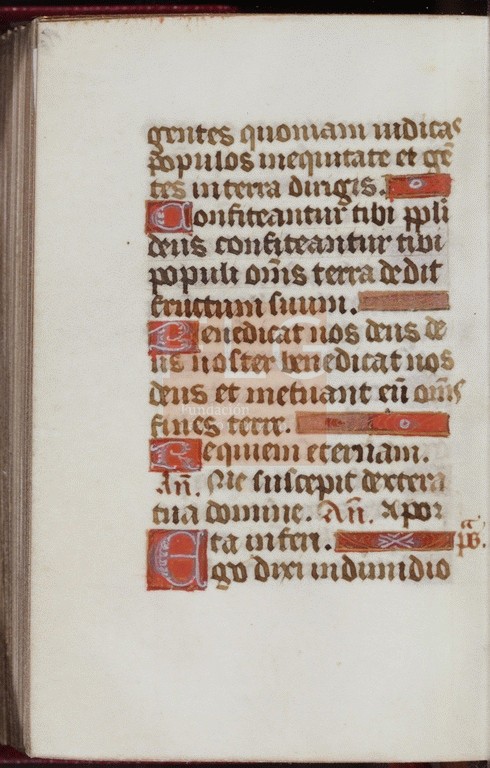 gentes quoniam iudicas
populos inequitate et gē
tes in terra dirigis.
Confiteantur tibi ppli
deus confiteantur tibi
populi om̄s terra dedit
fructum suum.
Benedicat nos deus de
us noster benedicat nos
deus et metuant eū om̄s
fines terre.
Requiem eternam.
An̄. Me suscepit dextera
tua domine. An̄. A por
ta inferi. ps.
Ego dixi indimidio
Fundación